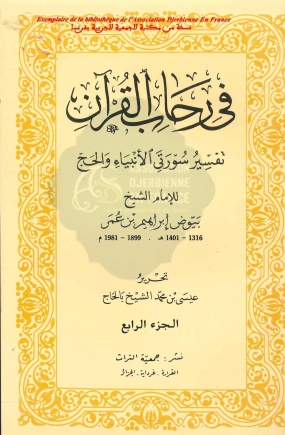 Exemplaire de la bibliothèque de l'Association Djerbienne En France
نسخة من مكتبة الجمعية الجربية بفرنسا
في رحاب القرآن
تفسير سورتي الأنبياء والحج
للإمام الشيخ
بيوض إبراهيم بن عمر
1316 - 1401 هـ . 1899 - 1981 م
DJERBIENNE
تحرير
عيسى بن محمد الشيخ بالحاج
الجزء الرابع
نشر : جمعية التراث
القرارة، غرداية، الجزائر